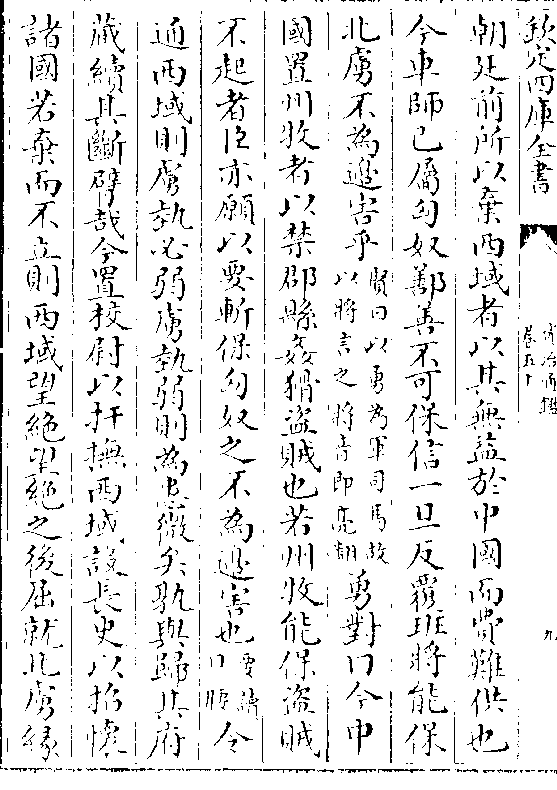 欽定四庫全書
資治通鑑
卷五十
九
朝廷前所以棄西域者以其無益於中國而費難供也
今車師已屬匈奴鄯善不可保信一旦反覆班將能保
北虜不為邊害乎賢曰以勇為軍司馬故以將言之將音即亮翻勇對曰今中
國置州牧者以禁郡縣姦猾盜賊也若州牧能保盜賊
不起者臣亦願以要斬保匈奴之不為邊害也要讀曰腰今
通西域則虜埶必弱虜埶弱則為患微矣孰與歸其府
藏續其斷臂哉今置校尉以扞撫西域設長史以招懷
諸國若棄而不立則西域望絶望絶之後屈就北虜緣